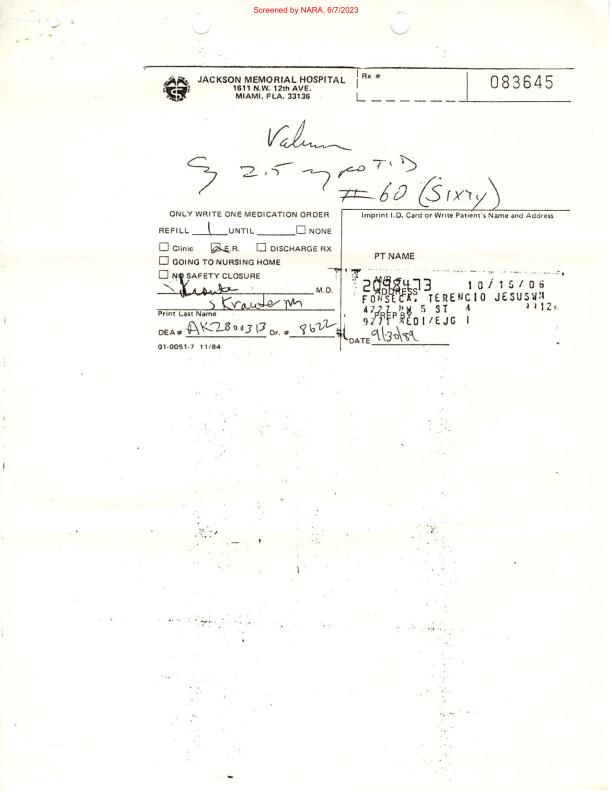 Screened by NARA, 6/7/2023
JACKSON MEMORIAL HOSPITAL
1611 N.W. 12th AVE.
MIAMI, FLA. 33136
Rx #
083645
Valium
2.5 mg po TID
#60 (Sixty)
ONLY WRITE ONE MEDICATION ORDER
REFILL 1 UNTIL NONE
Clinic E.R. DISCHARGE RX
GOING TO NURSING HOME
NO SAFETY CLOSURE
M.D.
Print Last Name
DEA # AK2800313 Dr. # 8622
Q1-0051-7 11/84
Imprint I.D. Card or Write Patient's Name and Address
PT NAME
2098473 10/15/06
ADDRESS
FONSECA, TERENCIO JESUSWH
5 ST 4
PREP BY
DATE 9/30/89